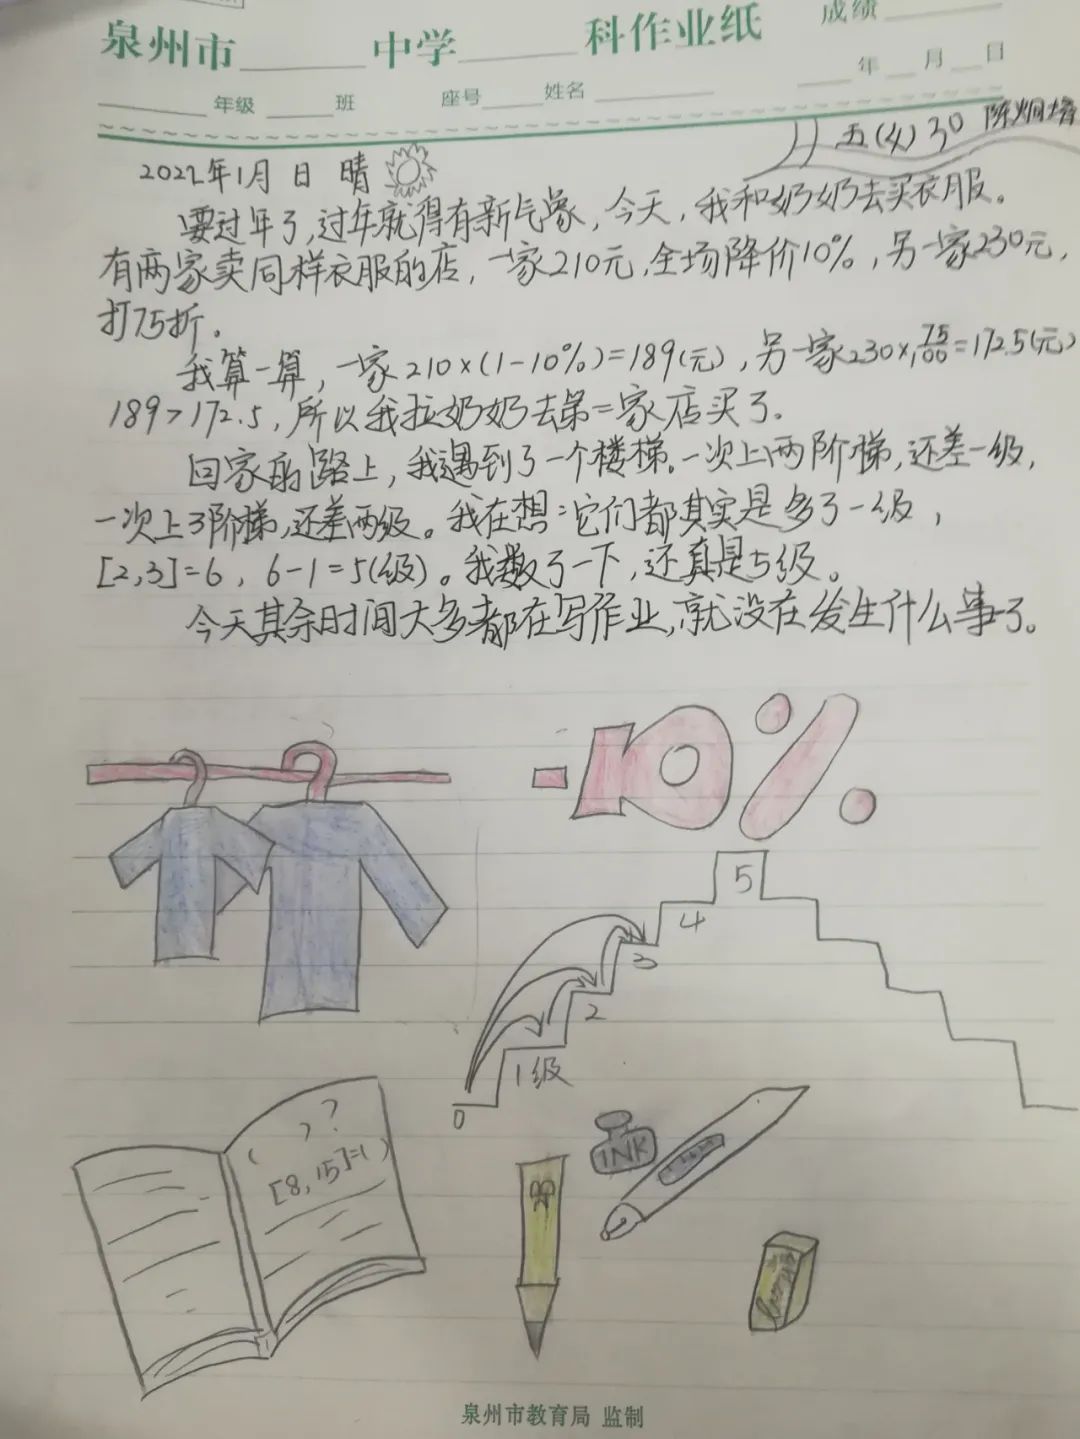 泉州市______中学______科作业纸 成绩______
____年级____班 座号____姓名______ ____年__月__日
五(4)30 陈炯
2022年1月 日 晴
要过年了,过年就得有新气象,今天,我和奶奶去买衣服。
有两家卖同样衣服的店,一家210元,全场降价10%,另一家230元,
打75折。
我算一算,一家210×(1-10%)=189(元),另一家230×75/100=172.5(元)
189>172.5,所以我拉奶奶去第二家店买了。
回家的路上,我遇到了一个楼梯.一次上两阶梯,还差一级,
一次上了阶梯,还差两级。我在想:它们都其实是多了一级,
[2,3]=6,6-1=5(级)。我数了一下,还真是5级。
今天其余时间大多都在写作业,就没在发生什么事了。
-10%
5
4
3
2
1级
0
( )?
[8,15]=1)
INK
泉州市教育局 监制